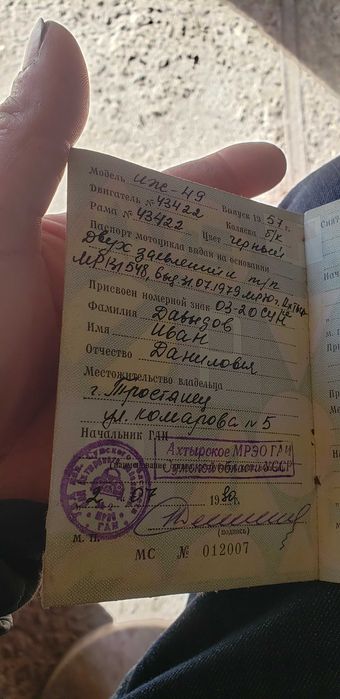 Модель ИЖ-49
Двигатель № 43422 Выпуск 1957 г.
Рама № 43422 Коляска б/к
Цвет черный
Паспорт мотоцикла выдан на основании
Двух заявлений и т/п
МР 131548, выд 31.07.1979 мрю г.
Присвоен номерной знак 03-20 СУН
Фамилия Давыдов
Имя Иван
Отчество Данилович
Местожительство владельца
г. Тростанец
ул. Комарова № 5
Начальник ГАИ
Ахтырское МРЭО ГАИ
Сумской области УССР
2 07 1980 г.
(подпись)
М. П.
МС № 012007